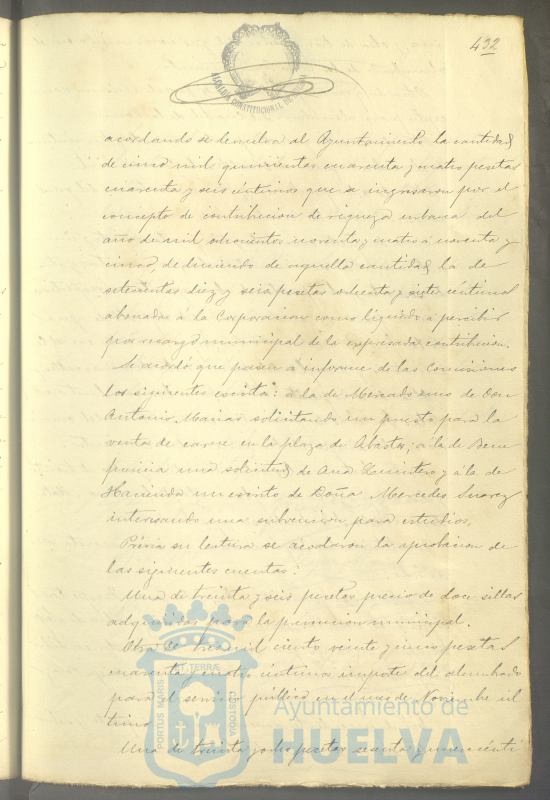 432
ALCALDIA CONSTITUCIONAL DE
acordando se devuelva al Ayuntamiento la cantidad
de cinco mil quinientas cuarenta y cuatro pesetas
cuarenta y seis céntimos que se ingresaron por el
concepto de contribucion de riqueza urbana del
año de mil ochocientos noventa y cuatro a noventa y
cinco, deduciendo de aquella cantidad la de
setecientas diez y seis pesetas ochenta y siete centimos
abonadas á la Corporacion como líquido á percibir
por recargo municipal de la expresada contribucion.
Se acordó que pasen á informe de las Comisiones
los siguientes escritos: á la de Mercado uno de Don
Antonio Macias solicitando un puesto para la
venta de carne en la plaza de Abastos; á la de Bene
ficencia una solicitud de Ana Quintero y á la de
Hacienda un escrito de Doña Mercedes Suarez
interesando una subvencion para estudios.
Prévia su lectura se acodaron la aprobacion de
las siguientes cuentas:
Una de treinta y seis pesetas precio de doce sillas
adquiridas para la prevencion municipal.
Otra de tres mil ciento veinte y cinco pesetas
cuarenta y cuatro céntimos impote del alumbrado
para el servicio público en el mes de Noviembre úl
timo
Una de treinta y ocho pesetas sesenta y nueve cénti
PORTUS MARIS ET TERRÆ CUSTODIA
Ayuntamiento de
HUELVA